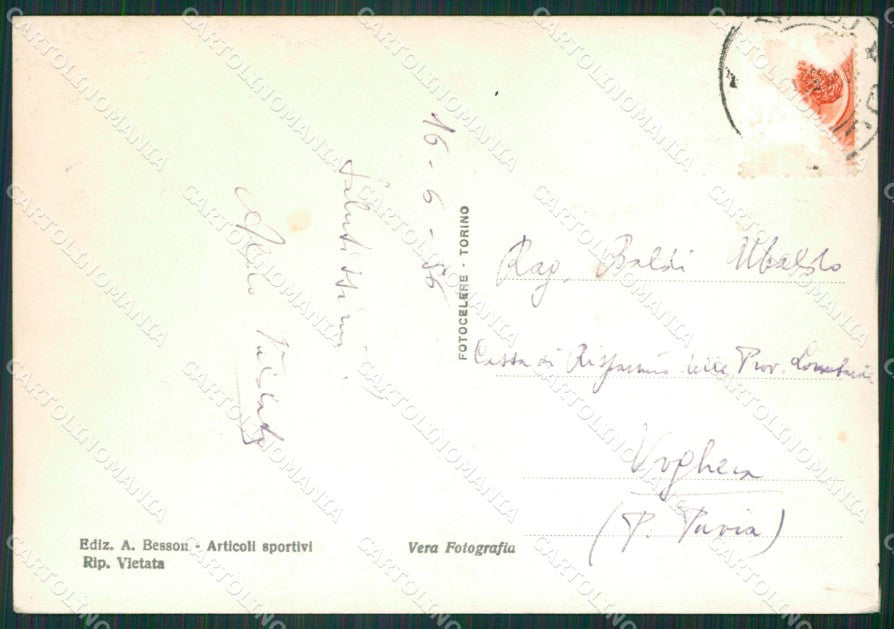 16-6-56
Salutissimi
Aldo
FOTOCELERE - TORINO
Rag. Baldi Ubaldo
Cassa di Risparmio delle Prov. Lombarde
Voghera
(P. Pavia)
Ediz. A. Besson - Articoli sportivi
Rip. Vietata
Vera Fotografia
CARTOLINOMANIA